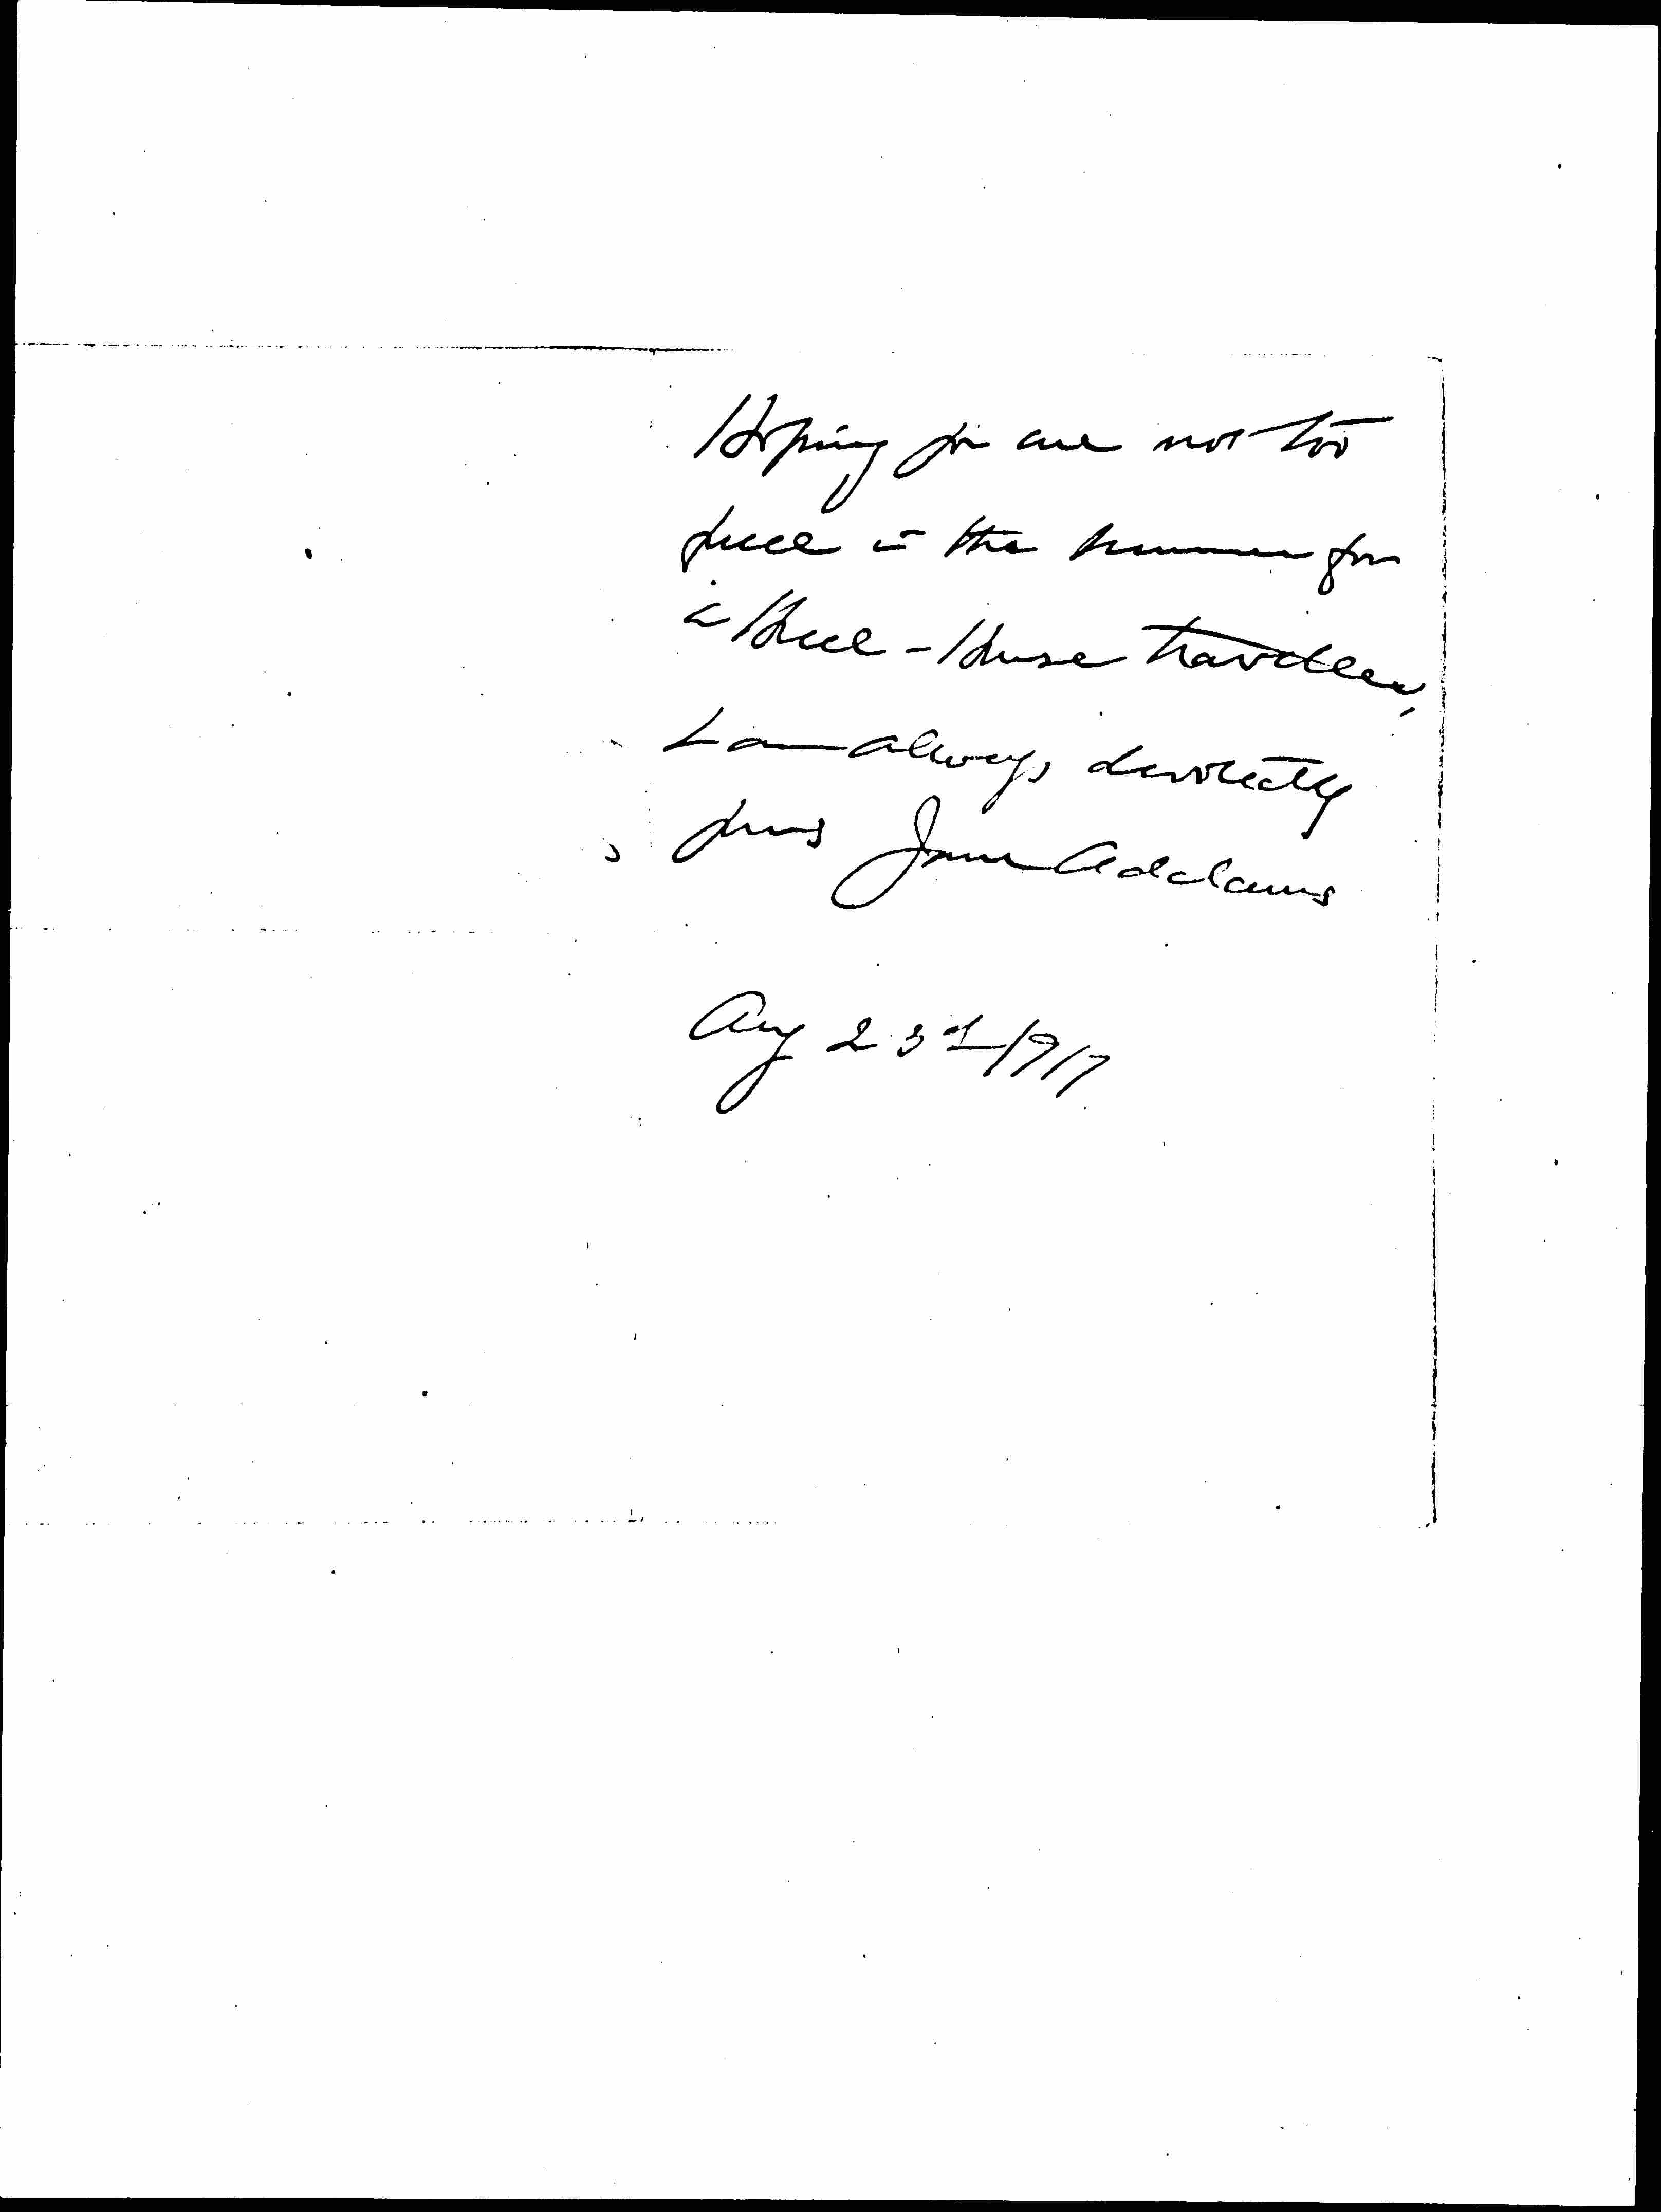 Hoping you are not too
full in the summer for
a Hull-House traveller,
I am always devotedly
yours Jane Addams
Aug 23d 1917